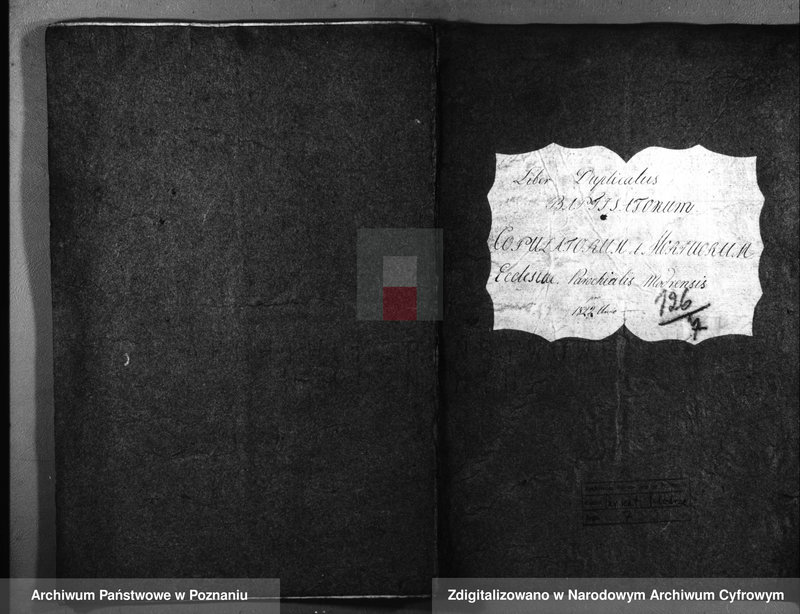 Liber Duplicatus
BAPTISATOrum
COPULATORUM & MORTUORUM
Ecclesiae Parochialis Modrensis
126
7
Archiwum Państwowe w Poznaniu
Zdigitalizowano w Narodowym Archiwum Cyfrowym